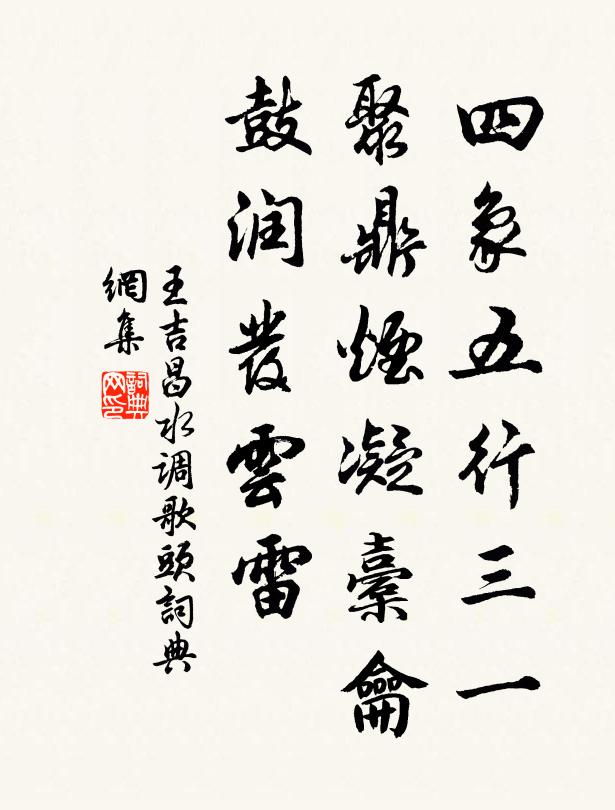 四象五行三一
聚鼎煙凝橐龠
鼓润發雲雷
王吉昌水调歌頭詞典
網集
詞典
网印